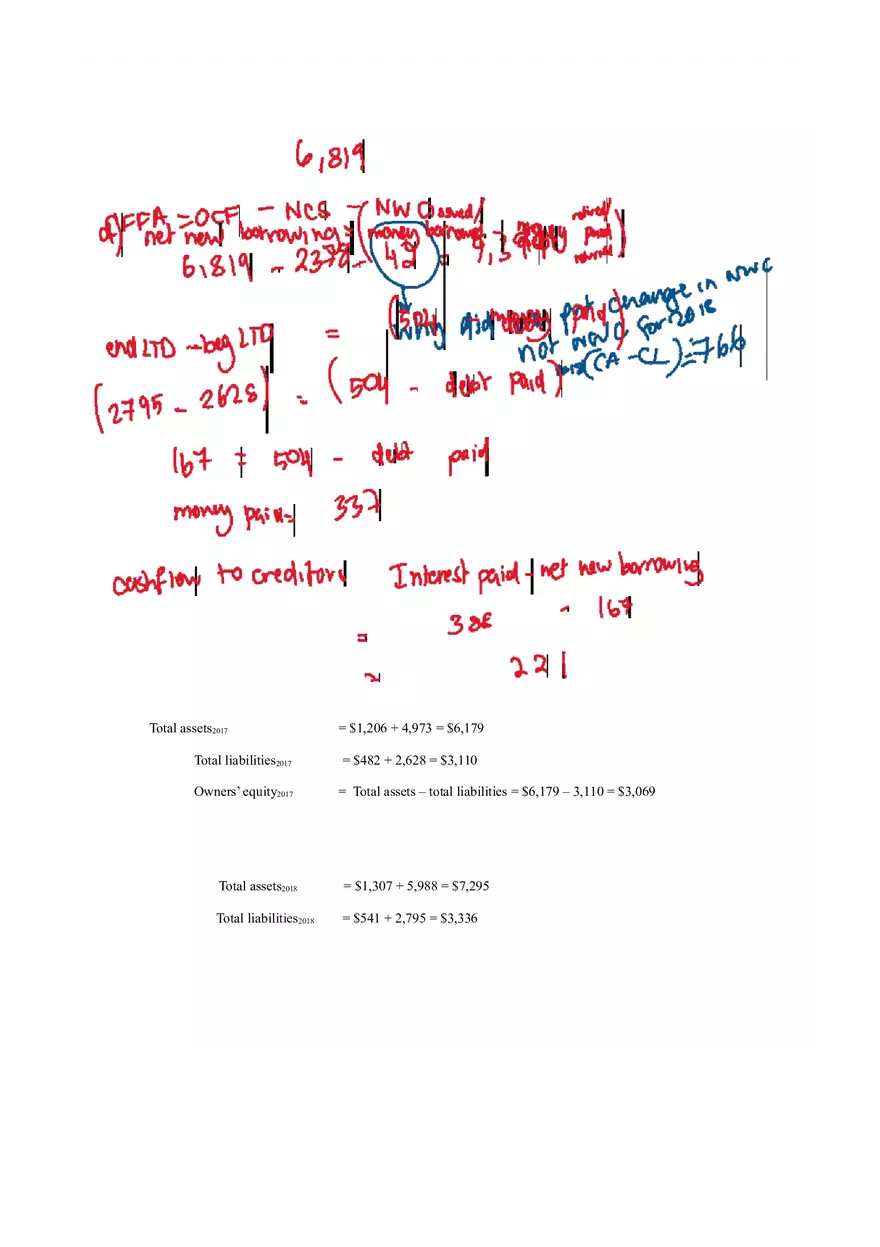 6,819
d) FCFA = OCF - NCS - (NWC
net new borrowing = (money borrowed - paid)
6,819 - 2378 - 42 =
(504 - money paid)
why did not put change in NWC
not NWC for 2018
(CA - CL) = 766
end LTD - beg LTD =
(2795 - 2628) = (504 - debt paid)
167 = 504 - debt paid
money paid = 337
cashflow to creditors Interest paid - net new borrowing
= 386 - 167
= 221
Total assets2017 = $1,206 + 4,973 = $6,179
Total liabilities2017 = $482 + 2,628 = $3,110
Owners’ equity2017 = Total assets – total liabilities = $6,179 – 3,110 = $3,069
Total assets2018 = $1,307 + 5,988 = $7,295
Total liabilities2018 = $541 + 2,795 = $3,336